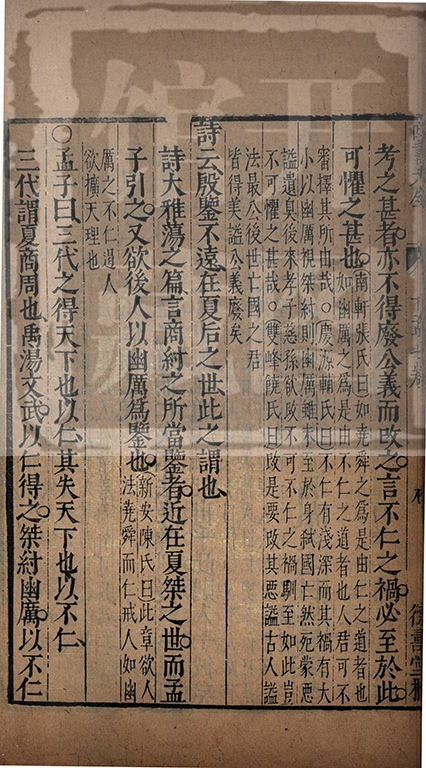 考之甚者亦不得廢公義而改之言不仁之禍必至於此
可懼之甚也
南軒張氏曰如堯舜之為是由仁之道者也
如幽厲之為是由不仁之道者也人君可不
審擇其所由哉慶源輔氏曰不仁有淺深而其禍有大
小以幽厲視桀紂則幽厲雖未至於身弑國亡然死蒙惡
謚遺臭後來孝子慈孫欲改不可不仁之禍馴至如此豈
不可懼之甚哉雙峰饒氏曰改是要改其惡謚古人謚
法最公後世亡國之君
皆得美謚公義廢矣
詩云殷鑒不遠在夏后之世此之謂也
詩大雅蕩之篇言商紂之所當鑒者近在夏桀之世而孟
子引之又欲後人以幽厲為鑒也
新安陳氏曰此章欲人
法堯舜而仁戒人如幽
厲之不仁遏人
欲擴天理也
○孟子曰三代之得天下也以仁其失天下也以不仁
三代謂夏商周也禹湯文武以仁得之桀紂幽厲以不仁